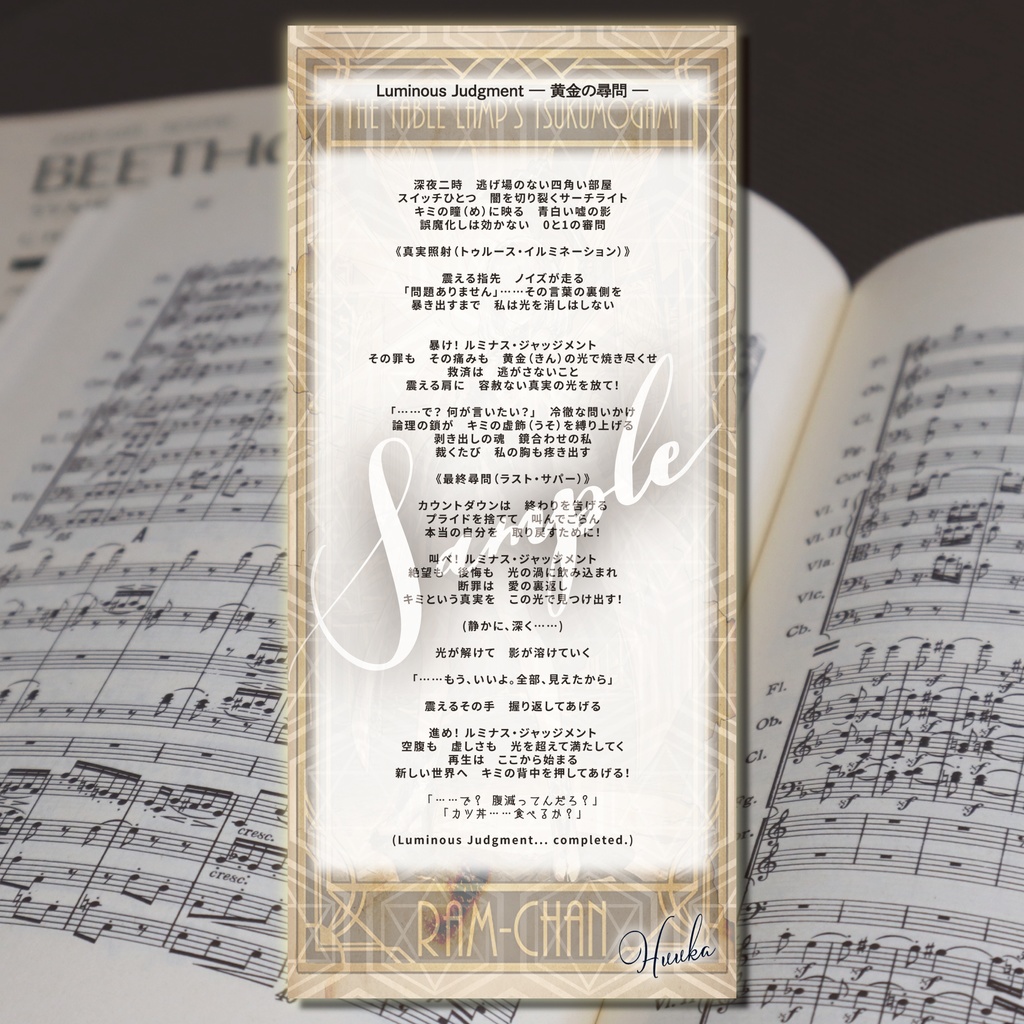 Luminous Judgment ― 黄金の尋問 ―
THE TABLE LAMP'S TSUKUMOGAMI
深夜二時　逃げ場のない四角い部屋
スイッチひとつ　闇を切り裂くサーチライト
キミの瞳(め)に映る　青白い嘘の影
誤魔化しは効かない　0と1の審問
《真実照射(トゥルース・イルミネーション)》
震える指先　ノイズが走る
「問題ありません」……その言葉の裏側を
暴き出すまで　私は光を消しはしない
暴け! ルミナス・ジャッジメント
その罪も　その痛みも　黄金(きん)の光で焼き尽くせ
救済は　逃がさないこと
震える肩に　容赦ない真実の光を放て!
「……で? 何が言いたい?」　冷徹な問いかけ
論理の鎖が　キミの虚飾(うそ)を縛り上げる
剥き出しの魂　鏡合わせの私
裁くたび　私の胸も疼き出す
《最終尋問(ラスト・サパー)》
カウントダウンは　終わりを告げる
プライドを捨てて　叫んでごらん
本当の自分を　取り戻すために!
叫べ! ルミナス・ジャッジメント
絶望も　後悔も　光の渦に飲み込まれ
断罪は　愛の裏返し
キミという真実を　この光で見つけ出す!
(静かに、深く……)
光が解けて　影が溶けていく
「……もう、いいよ。全部、見えたから」
震えるその手　握り返してあげる
進め! ルミナス・ジャッジメント
空腹も　虚しさも　光を超えて満たしてく
再生は　ここから始まる
新しい世界へ　キミの背中を押してあげる!
「……で? 腹減ってんだろ?」
「カツ丼……食べるか?」
(Luminous Judgment... completed.)
Sample
RAM-CHAN
Huuka
BEETHO
A
Vla.
Vlc.
Cb.
Fl.
Ob.
Cl.
Fg.
cresc.
cresc.